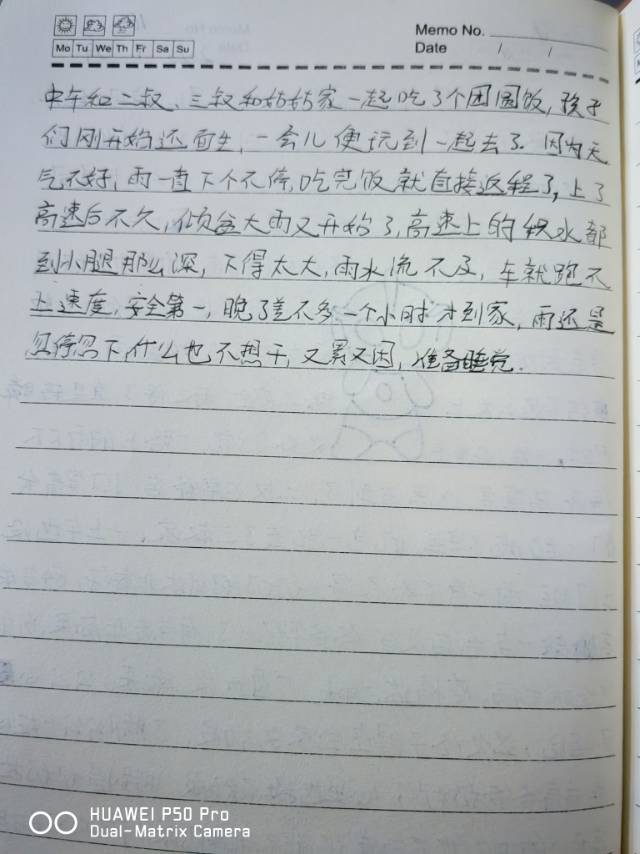 Memo No.
Mo Tu We Th Fr Sa Su
Date / /
中午和二叔、三叔和姑姑家一起吃了个团圆饭,孩子
们刚开始还面生,一会儿便玩到一起去了.因为天
气不好,雨一直下个不停,吃完饭就直接返程了,上了
高速后不久,倾盆大雨又开始了,高速上的积水都
到小腿那么深,下得太大,雨水流不及,车就跑不
上速度,安全第一,晚了差不多一个小时才到家,雨还是
忽停忽下,什么也不想干,又累又困,准备睡觉.
HUAWEI P50 Pro
Dual-Matrix Camera